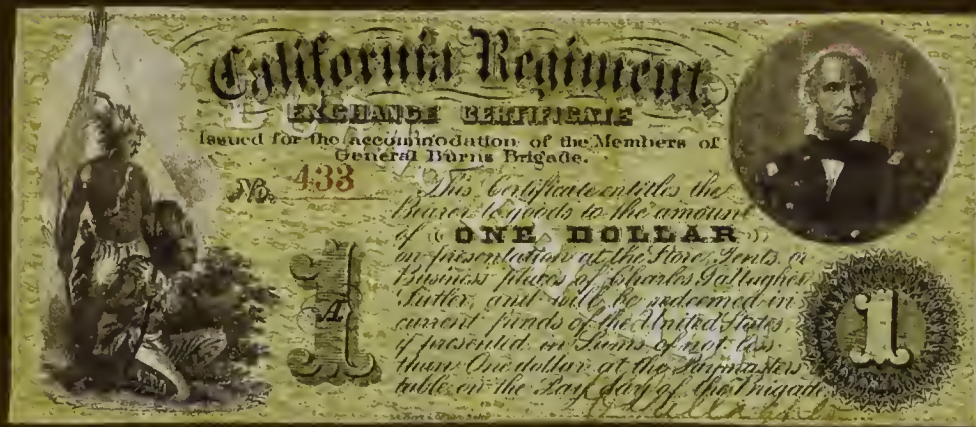 California Regiment.
EXCHANGE CERTIFICATE
Issued for the accommodation of the Members of
General Burns Brigade.
No. 433
This Certificate entitles the
Bearer to goods to the amount
of ONE DOLLAR
on presentation at the Store, Tents, or
Business places of Charles Gallagher
Sutler, and will be redeemed in
current funds of the United States,
if presented in Sums of not less
than One dollar at the Paymasters
table on the Pay day of the Brigade
1
A
1